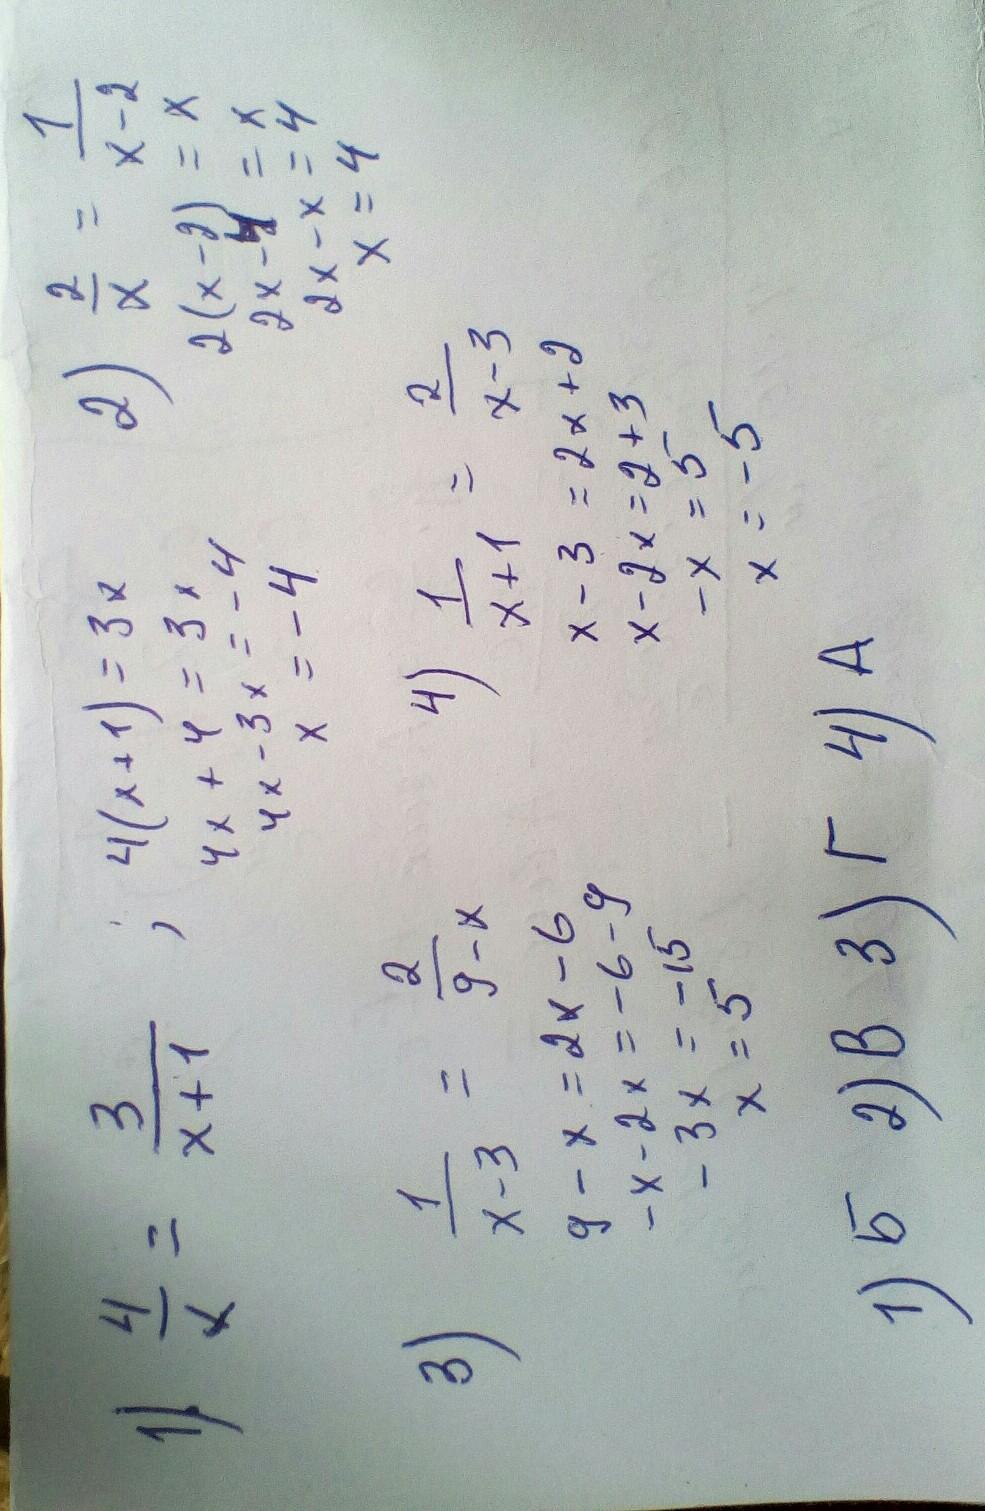 1) 4/x = 3/(x+1) ; 4(x+1) = 3x
4x + 4 = 3x
4x - 3x = -4
x = -4
2) 2/x = 1/(x-2)
2(x-2) = x
2x - 4 = x
2x - x = 4
x = 4
3) 1/(x-3) = 2/(9-x)
9 - x = 2x - 6
-x - 2x = -6 - 9
-3x = -15
x = 5
4) 1/(x+1) = 2/(x-3)
x - 3 = 2x + 2
x - 2x = 2 + 3
-x = 5
x = -5
1) Б 2) В 3) Г 4) А